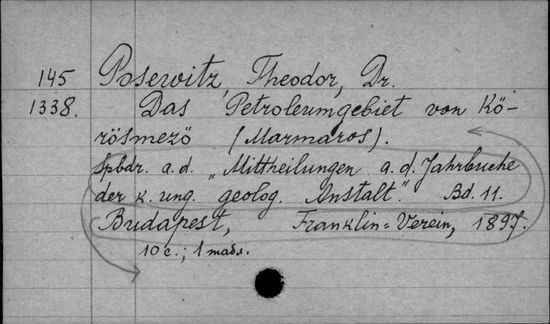 145 Posewitz, Theodor, Dr.
1338. Das Petroleumgebiet von Kö-
rösmező (Marmaros).
Spbdr. a. d. „Mittheilungen a. d. Jahrbuche
der k. ung. geolog. Anstalt". Bd. 11.
Budapest, Franklin=Verein, 1897.
10 c.; 1